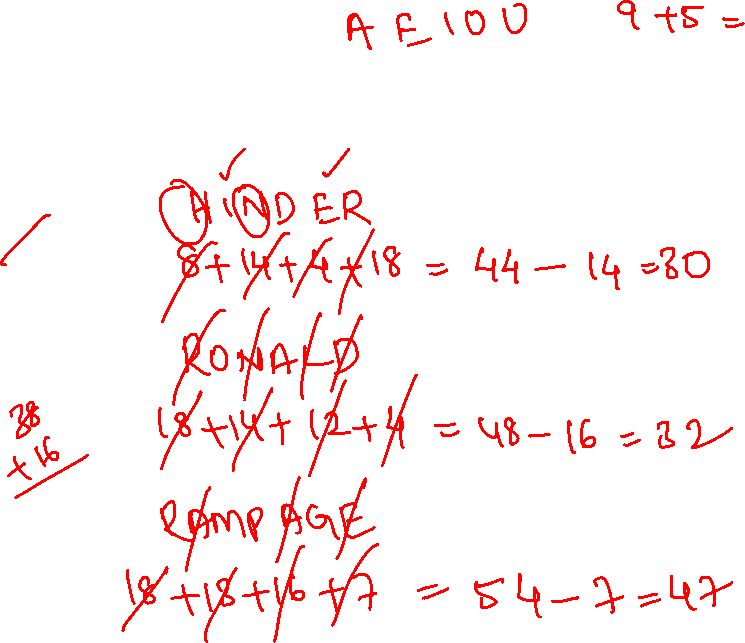 A E I O U 9 + 5 =
HINDER
8 + 14 + 4 + 18 = 44 - 14 = 30
RONALD
38
18 + 14 + 12 + 4 = 48 - 16 = 32
+ 16
RAMPAGE
18 + 13 + 16 + 7 = 54 - 7 = 47